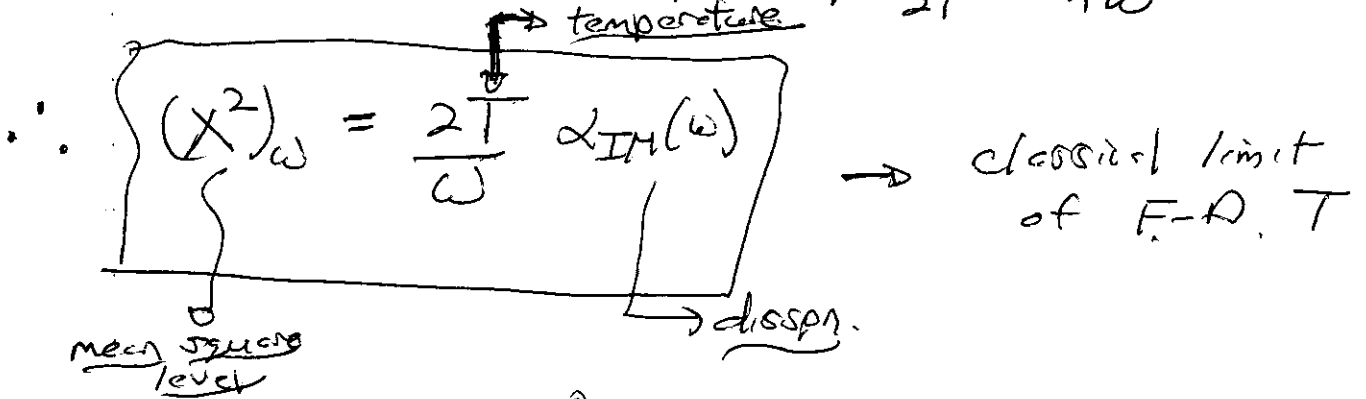 temperature
∴ (x²)_ω = 2T/ω α_IM(ω) → classical limit
of F.-D. T
mean square
level
disspn.